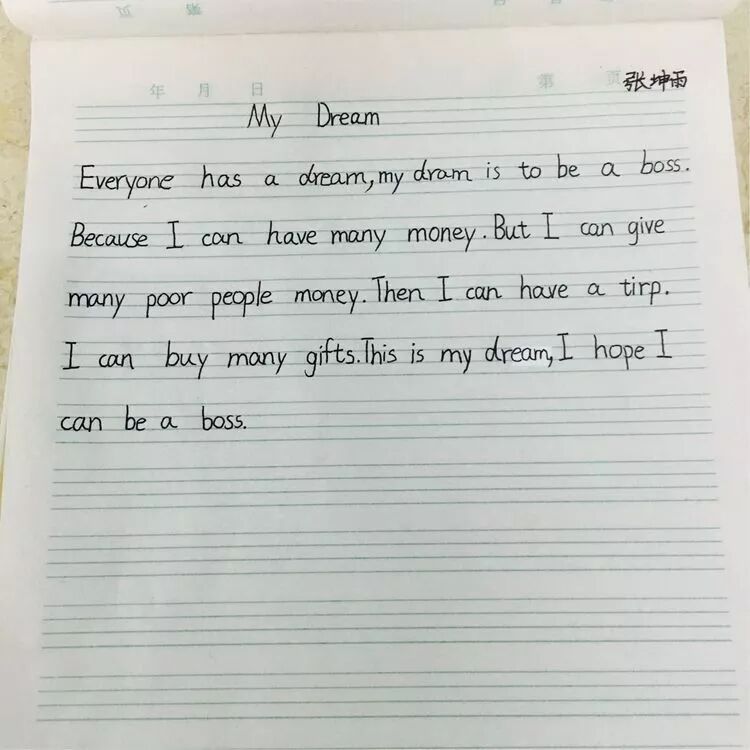 页 第
年 月 日 第 页 张坤雨
My Dream
Everyone has a dream, my dram is to be a boss.
Because I can have many money. But I can give
many poor people money. Then I can have a tirp.
I can buy many gifts. This is my dream, I hope I
can be a boss.